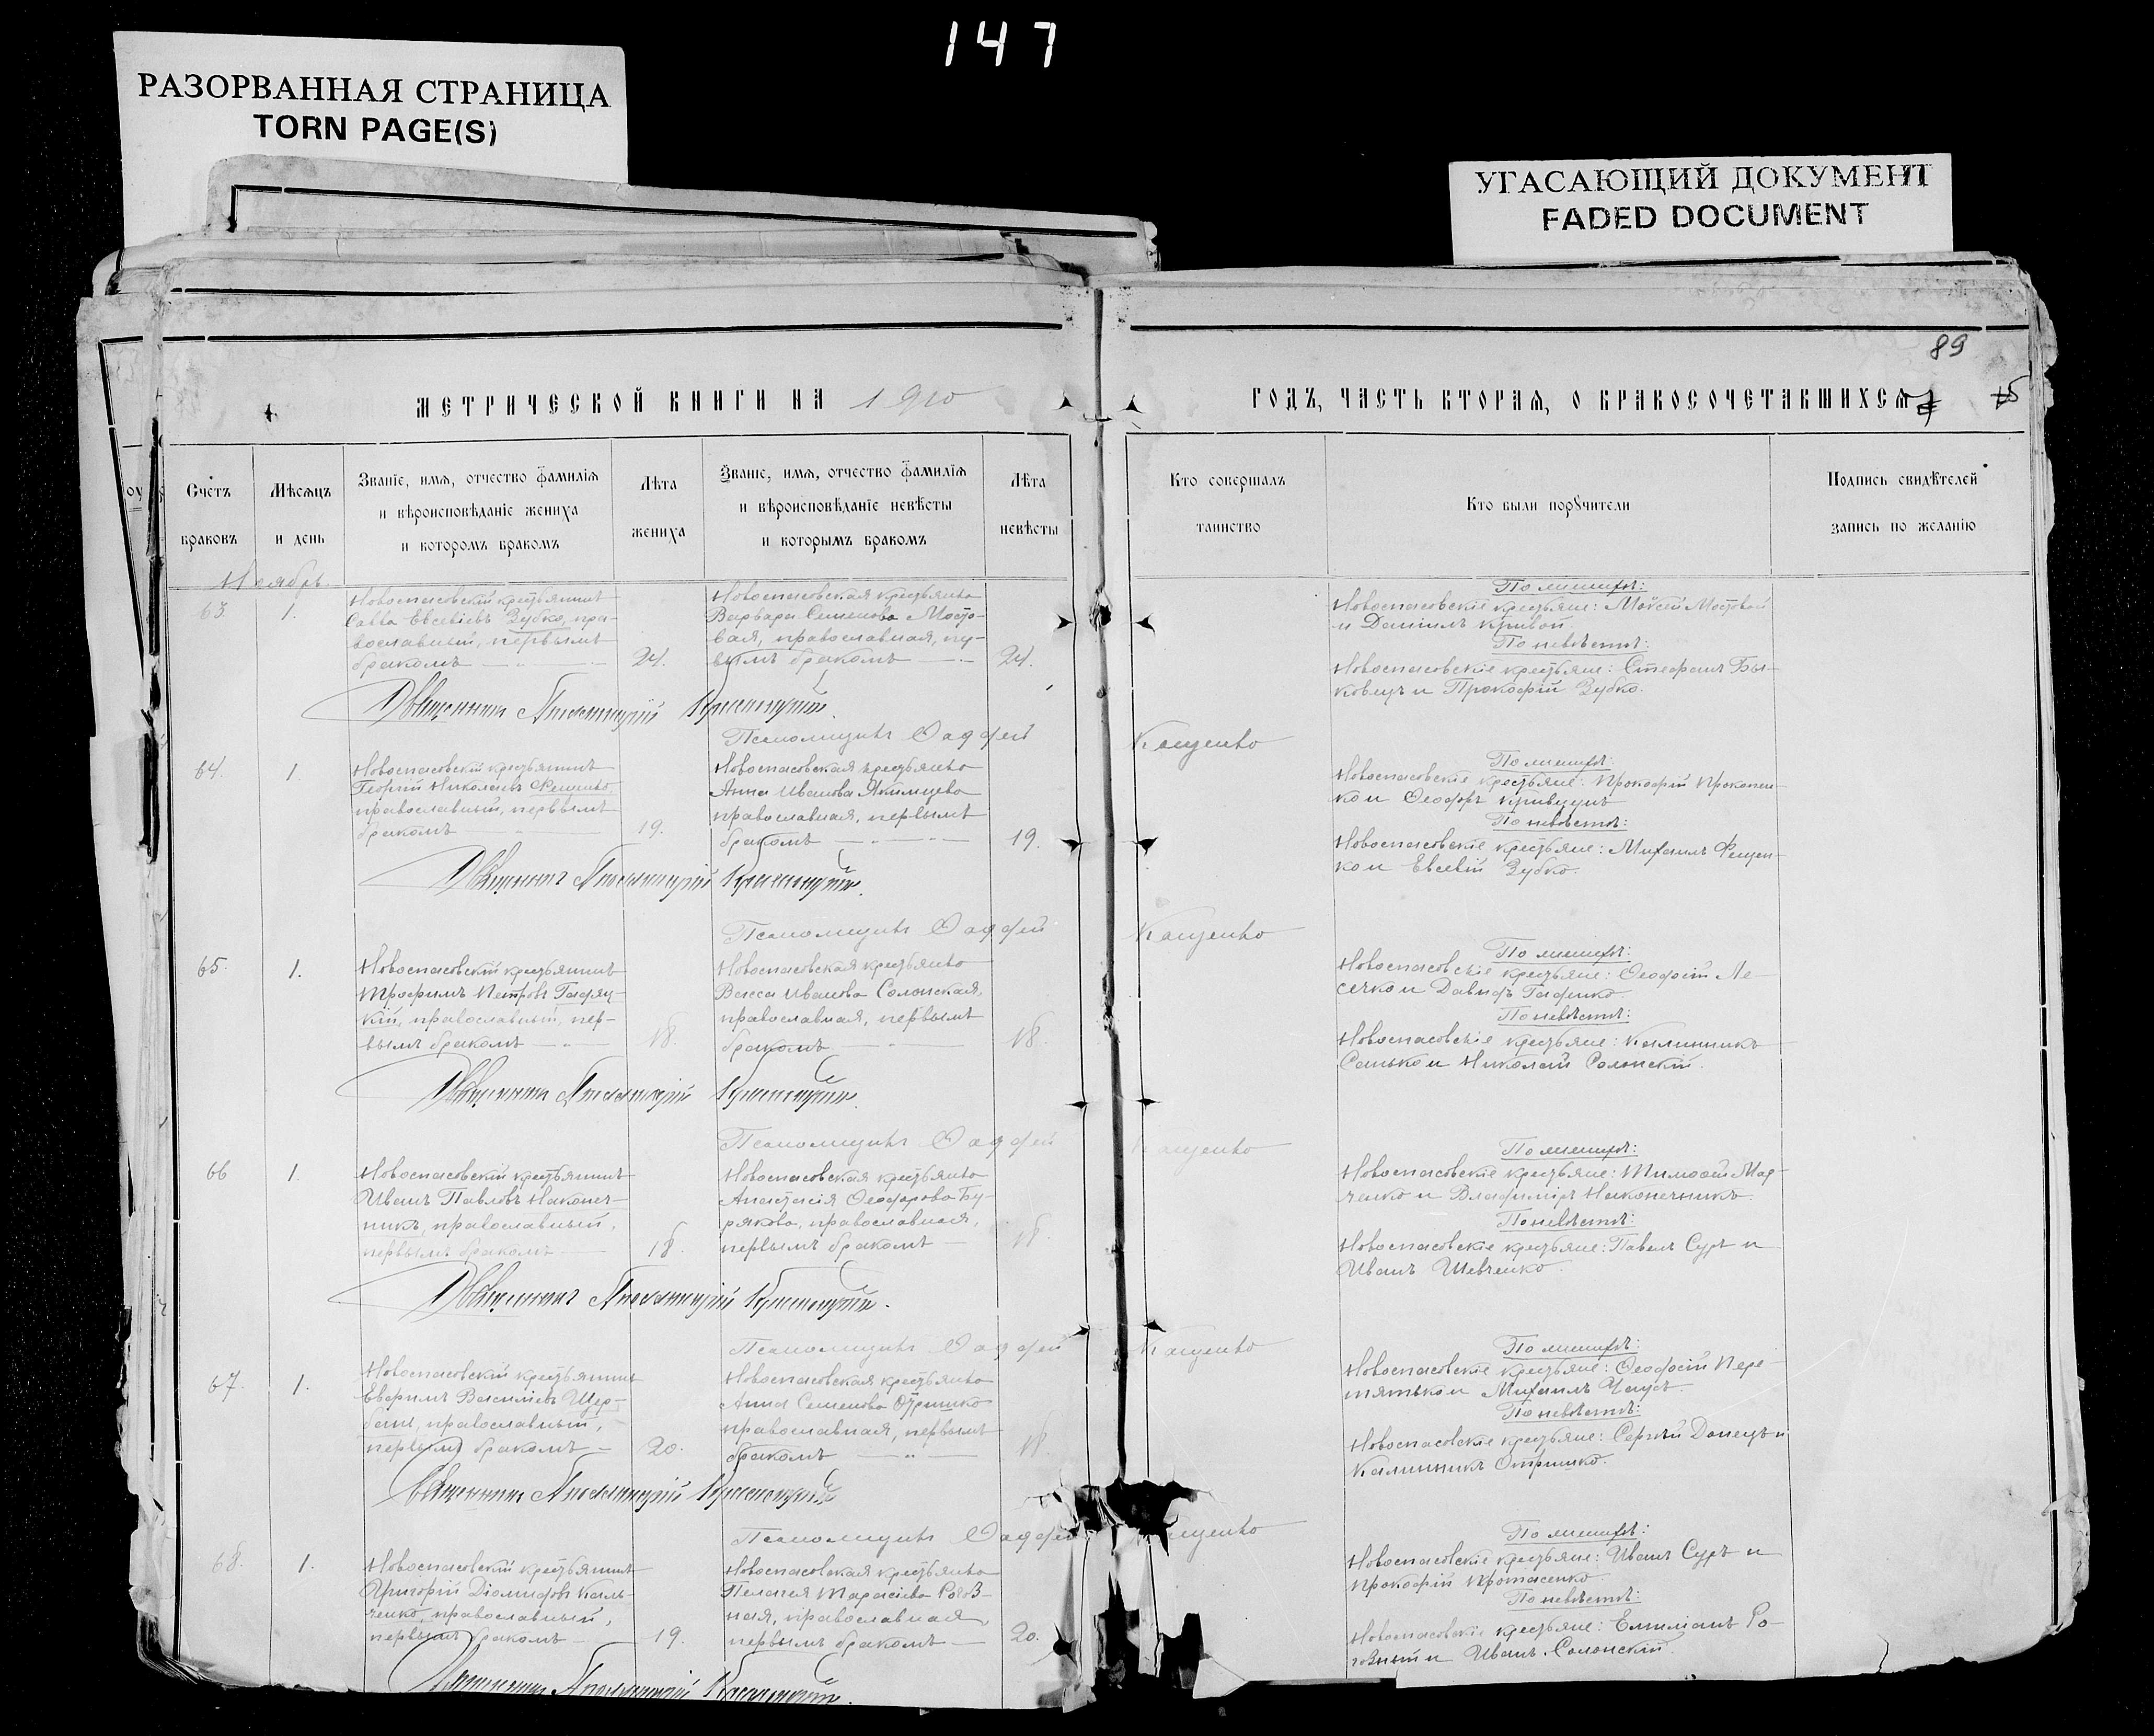 147
РАЗОРВАННАЯ СТРАНИЦА
TORN PAGE(S)
УГАСАЮЩИЙ ДОКУМЕНТ
FADED DOCUMENT
89
МЕТРИЧЕСКОЙ КНИГИ НА 1910
ГОДЪ, ЧАСТЬ ВТОРАЯ, О БРАКОСОЧЕТАВШИХСЯ
Счетъ
браковъ
Мѣсяцъ
и день
Званіе, имя, отчество фамилія
и вѣроисповѣданіе жениха
и которомъ бракомъ
Лѣта
жениха
Званіе, имя, отчество фамилія
и вѣроисповѣданіе невѣсты
и которымъ бракомъ
Лѣта
невѣсты
Кто совершалъ
таинство
Кто были поручители
Подпись свидѣтелей
запись по желанію
Ноябрь
63
1.
Новоспасовскій крестьянинъ
Савва Евсевіевъ Зубко, пра-
вославный, первымъ
бракомъ
24.
Новоспасовская крестьянка
Варвара Семенова Мосто-
вая, православная, пер-
вымъ бракомъ
24.
По женихѣ:
Новоспасовскіе крестьяне: Моѵсей Мостовой
и Даніилъ Кривой.
По невѣстѣ:
Новоспасовскіе крестьяне: Стефанъ Бы-
ковецъ и Прокофій Зубко.
Священникъ
Псаломщикъ Фаддей Кащенко
64.
1.
Новоспасовскій крестьянинъ
Георгій Николаевъ Фещенко,
православный, первымъ
бракомъ
19.
Новоспасовская крестьянка
Анна Иванова Якимцева
православная, первымъ
бракомъ
19.
По женихѣ:
Новоспасовскіе крестьяне: Прокофій Прокопен-
ко и Феодоръ Кривуцъ
По невѣстѣ:
Новоспасовскіе крестьяне: Михаилъ Фещен-
ко и Евсевій Зубко.
Священникъ
Псаломщикъ Фаддей Кащенко
65.
1.
Новоспасовскій крестьянинъ
Трофимъ Петровъ Гадяц-
кій, православный, пер-
вымъ бракомъ
18.
Новоспасовская крестьянка
Васса Иванова Солонская,
православная, первымъ
бракомъ
18.
По женихѣ:
Новоспасовскіе крестьяне: Феодосій Ле-
сечко и Давидъ Гаденко.
По невѣстѣ:
Новоспасовскіе крестьяне: Калинникъ
Сенько и Николай Солонскій.
Священникъ
Псаломщикъ Фаддей Кащенко
66
1.
Новоспасовскій крестьянинъ
Иванъ Павловъ Наконеч-
никъ, православный,
первымъ бракомъ
18.
Новоспасовская крестьянка
Анастасія Феодорова Бу-
рякова, православная,
первымъ бракомъ
18.
По женихѣ:
Новоспасовскіе крестьяне: Тимофей Мар-
ченко и Владиміръ Наконечникъ.
По невѣстѣ:
Новоспасовскіе крестьяне: Павелъ Суръ и
Иванъ Шевченко.
Священникъ
Псаломщикъ Фаддей Кащенко
67.
1.
Новоспасовскій крестьянинъ
Евфимъ Василіевъ Щер-
бань, православный,
первымъ бракомъ
20.
Новоспасовская крестьянка
Анна Семенова Отришко
православная, первымъ
бракомъ
18.
По женихѣ:
Новоспасовскіе крестьяне: Феодосій Пере-
тятько и Михаилъ Чаусъ.
По невѣстѣ:
Новоспасовскіе крестьяне: Сергѣй Донецъ и
Калинникъ Отришко.
Священникъ
Псаломщикъ Фаддей
68.
1.
Новоспасовскій крестьянинъ
Григорій Діомидовъ Каль-
ченко, православный,
первымъ бракомъ
19.
Новоспасовская крестьянка
Пелагія Тарасіева Рогоз-
ная, православная,
первымъ бракомъ
20.
По женихѣ:
Новоспасовскіе крестьяне: Иванъ Суръ и
Прокофій Протасенко.
По невѣстѣ:
Новоспасовскіе крестьяне: Емиліанъ Ро-
гозный и Иванъ Солонскій.
Священникъ